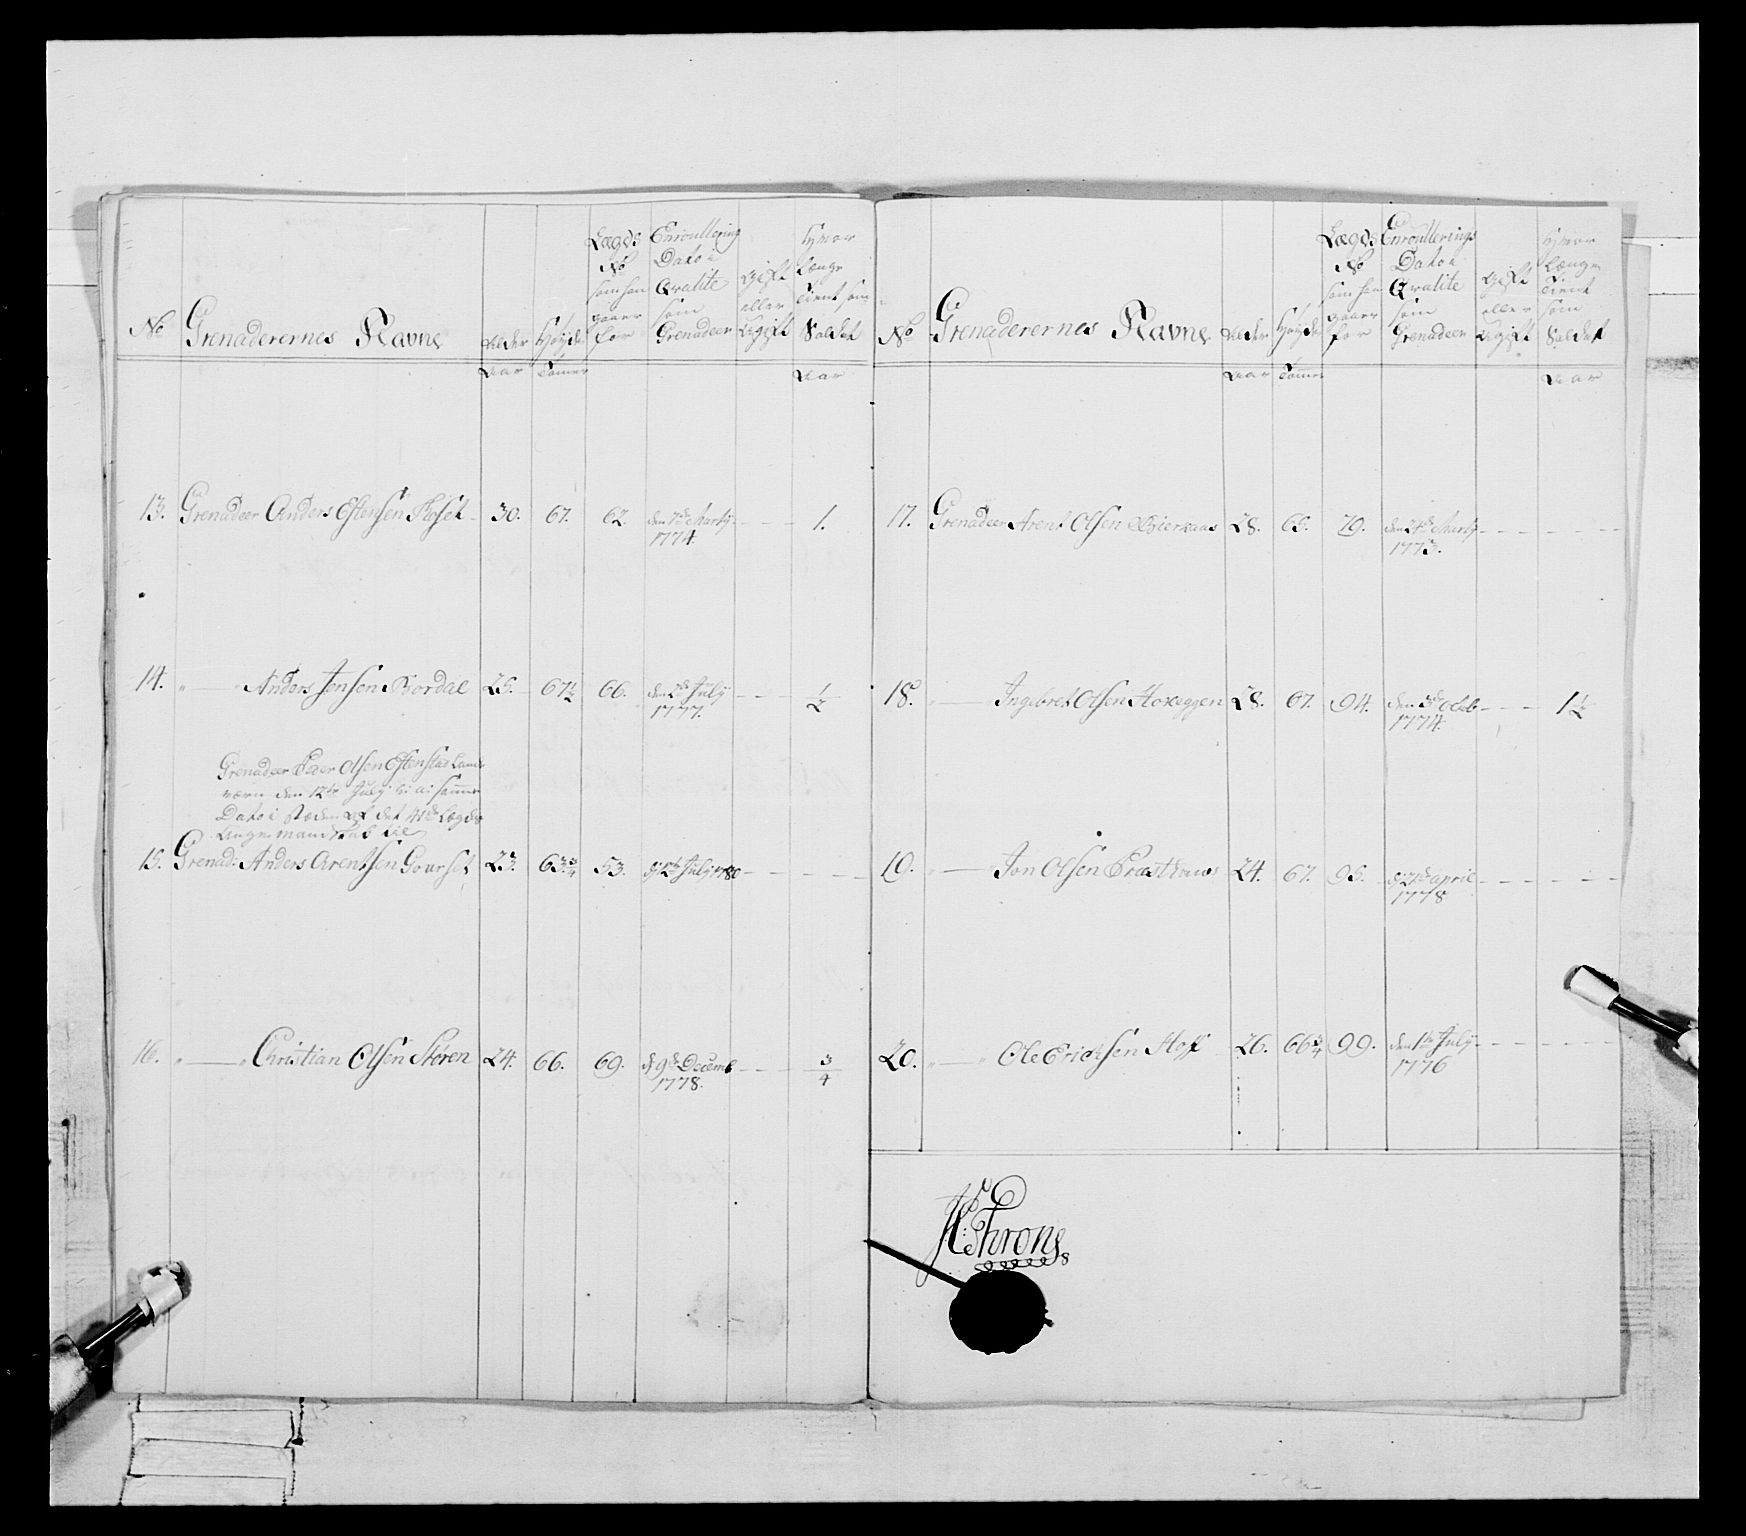 No Grenaderernes Navne Alder Høyde Lægds No som han gaaer for Enroullering Dato i Qvalite som Grenadeer Gift eller Ugift Hvor længe Tient som Soldat
Aar Tomer Aar
13. Grenadeer Anders Estensen Roset 30. 67. 62. den 7de Marty 1. 
1774.
14. " — " Anders Jensen Bordal 25. 67½ 66. den 2de July ½
1777.
Grenadeer Peder Olsen Estenstad Land
værn den 12te July h: a: samme
Dato i stæden af det 41de Lægder
Unge mandskab til
15. Grenad: Anders Arentsen Goarset 23. 63¾ 53. d 12te July 1780
16. " — " Christian Olsen Støren 24. 66. 69. d 9de Decemb ¾
1778.
No Grenaderernes Navne Alder Høyde Lægds No som han gaaer for Enroullerings Dato i Qvalite som Grenadeer Gift eller Ugift Hvor Længe Tient som Soldat
Aar Tomer Aar
17. Grenadeer Arent Olsen 28. 65. 79. den 24de Marty
1773.
18. " — " Ingebret Olsen Hoxeggen 28. 67. 94. den 3de Octob 1½
1774.
19. " — Jon Olsen Præsthuus 24. 67. 95. d 21de april
1778
20. " — " Ole Erichsen Hoff 26. 66¾ 99. den 1te July
1776
H: Throns